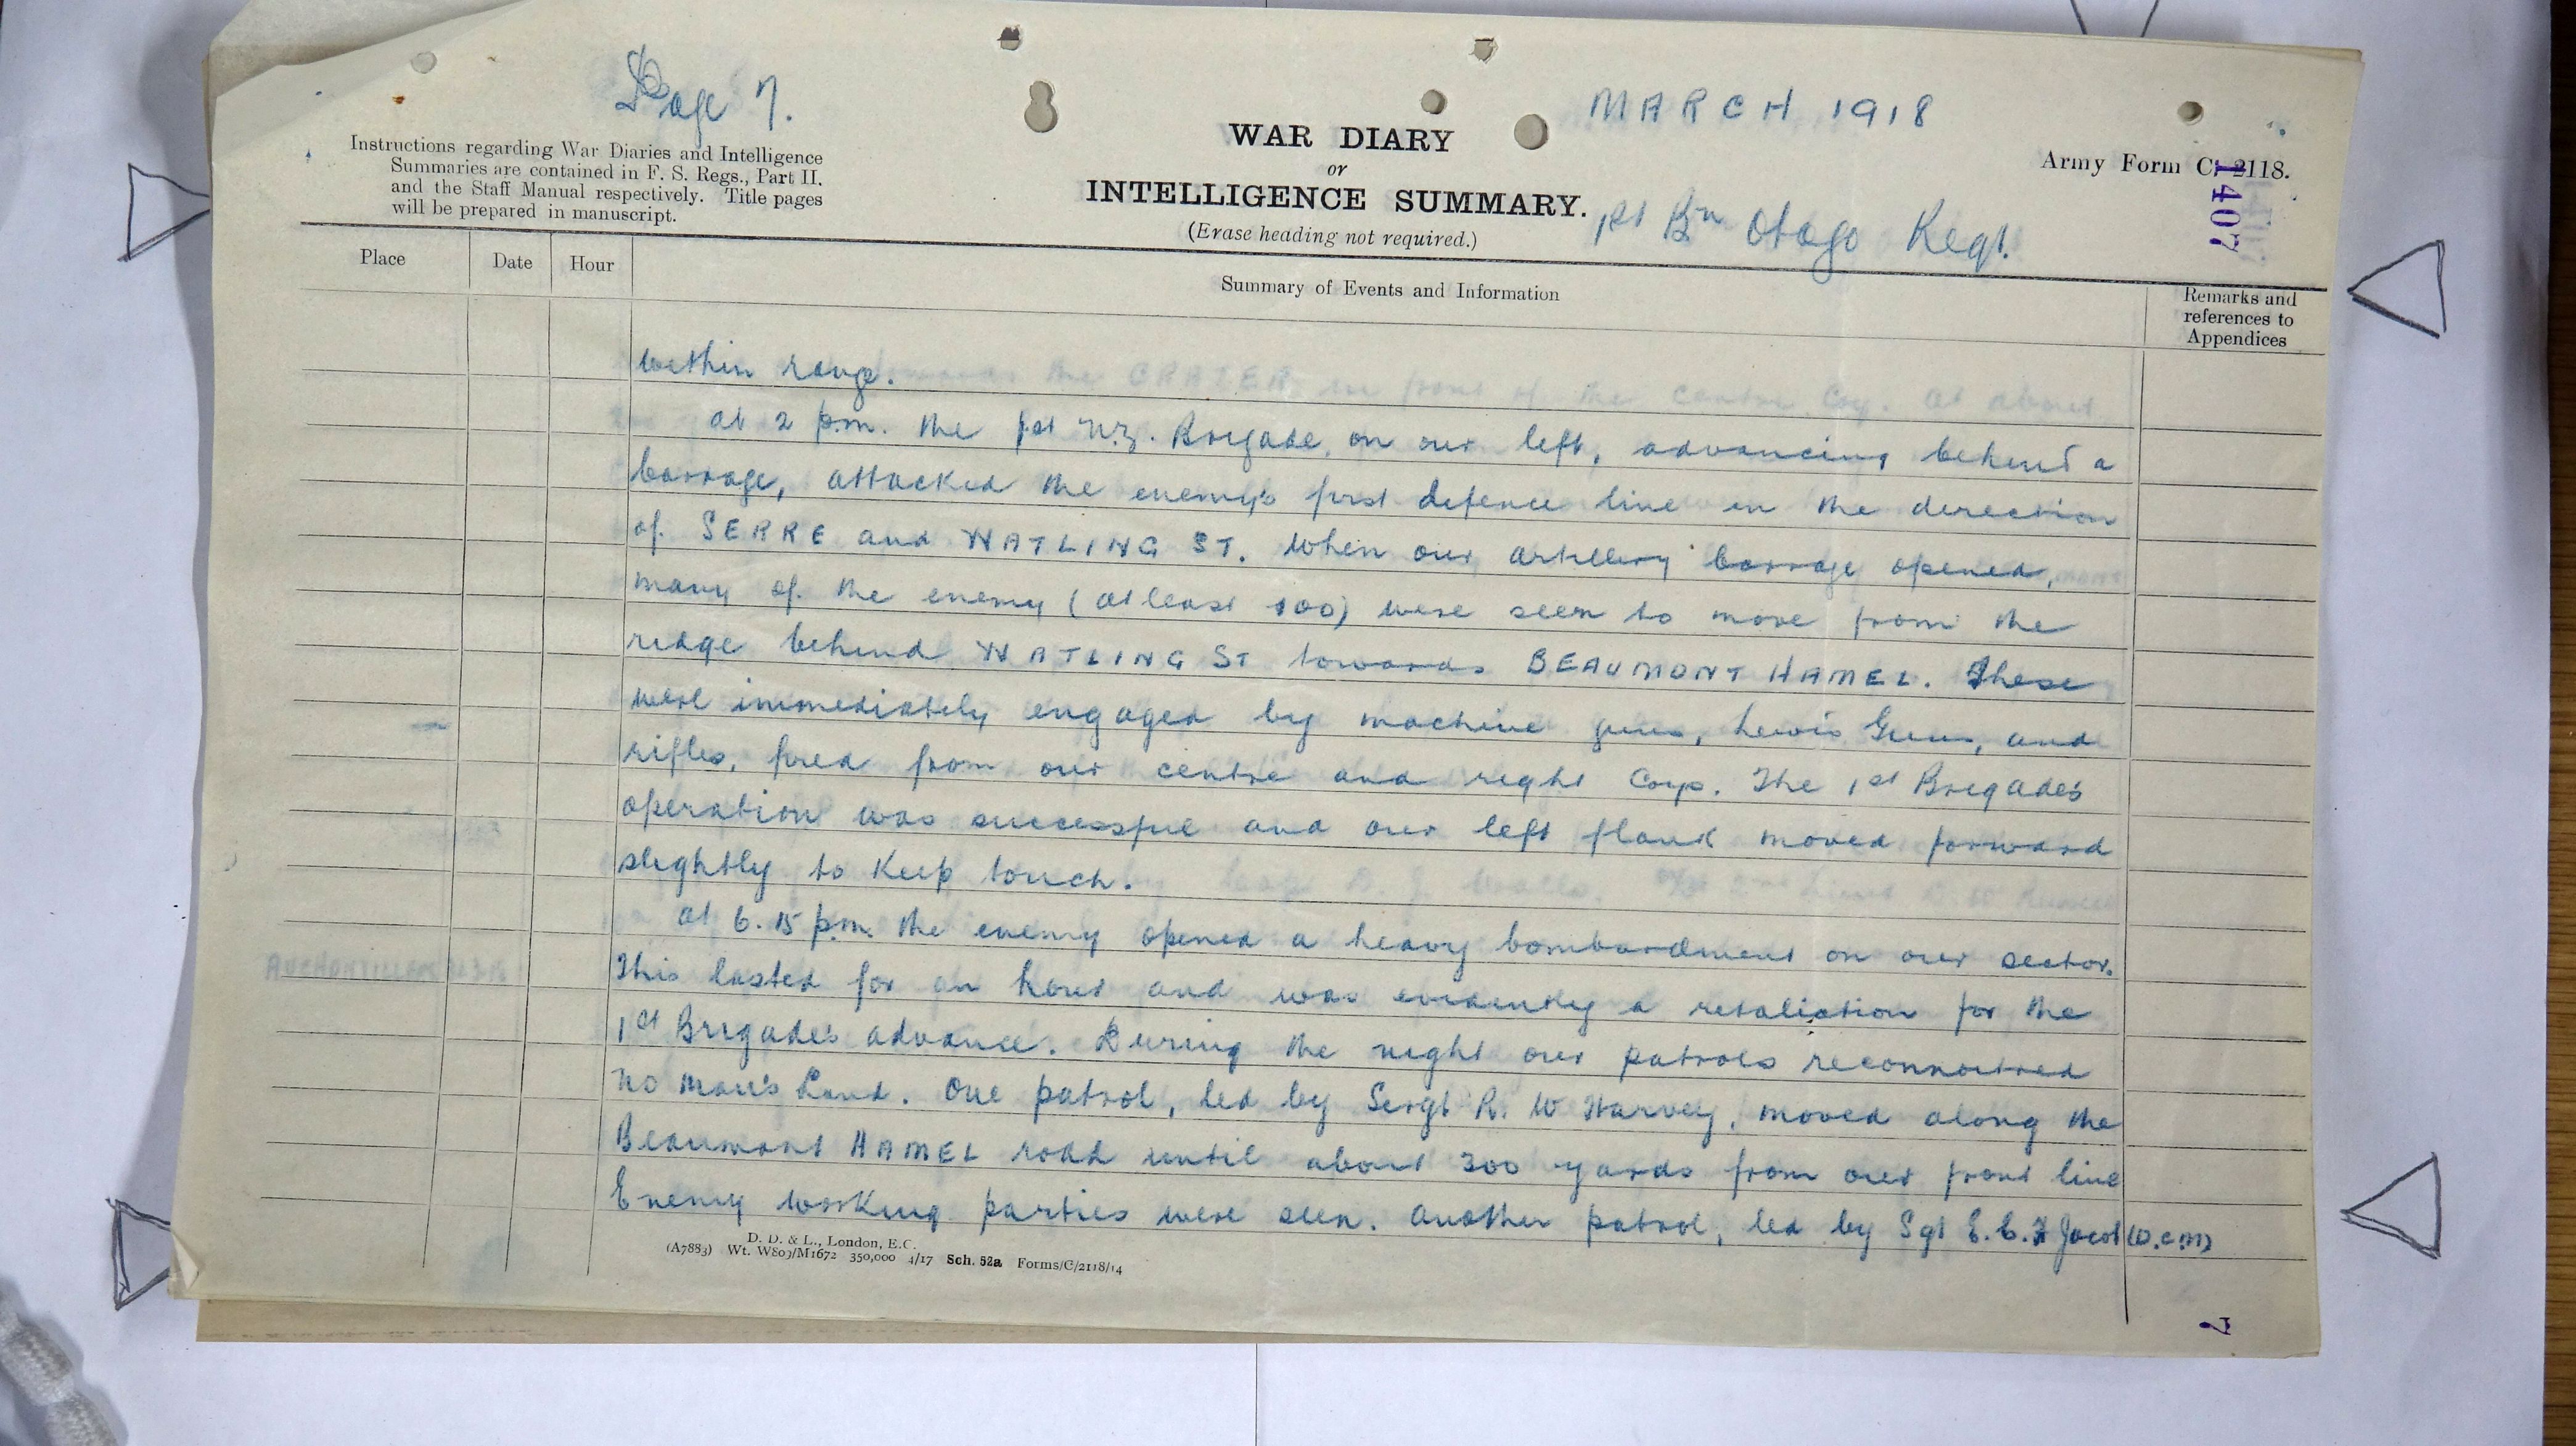 Page 7.
MARCH 1918
WAR DIARY
or
INTELLIGENCE SUMMARY.
(Erase heading not required.)
Instructions regarding War Diaries and Intelligence
Summaries are contained in F. S. Regs., Part II.
and the Staff Manual respectively. Title pages
will be prepared in manuscript.
Army Form C. 2118.
1407
1st Bn Otago Regt.
Place Date Hour Summary of Events and Information Remarks and references to Appendices
within range.
at 2 p.m. the 1st N.Z. Brigade, on our left, advancing behind a
barrage, attacked the enemy's first defence line in the direction
of SERRE and WATLING ST. When our artillery barrage opened,
many of the enemy (at least 100) were seen to move from the
ridge behind WATLING ST towards BEAUMONT HAMEL. These
were immediately engaged by machine guns, Lewis Guns, and
rifles, fired from our centre and right Coys. The 1st Brigade's
operation was successful and our left flank moved forward
slightly to keep touch.
at 6.15 p.m. the enemy opened a heavy bombardment on our sector.
This lasted for an hour and was evidently a retaliation for the
1st Brigade's advance. During the night our patrols reconnoitred
No Man's Land. One patrol, led by Sergt R. W Harvey, moved along the
Beaumont HAMEL road until about 300 yards from our front line
Enemy working parties were seen. Another patrol, led by Sgt E. C. Jacob (D.C.M)
D. D. & L., London, E.C.
(A7883) Wt. W809/M1672 350,000 4/17 Sch. 52a Forms/C/2118/14
7